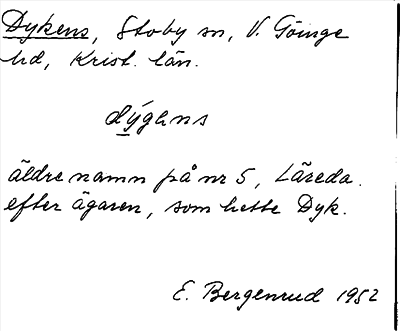 Dykens, Stoby sn, V. Göinge
hd, Krist. län.
dýgens
äldre namn på nr 5, Läreda.
efter ägaren, som hette Dyk.
E. Bergenrud 1952